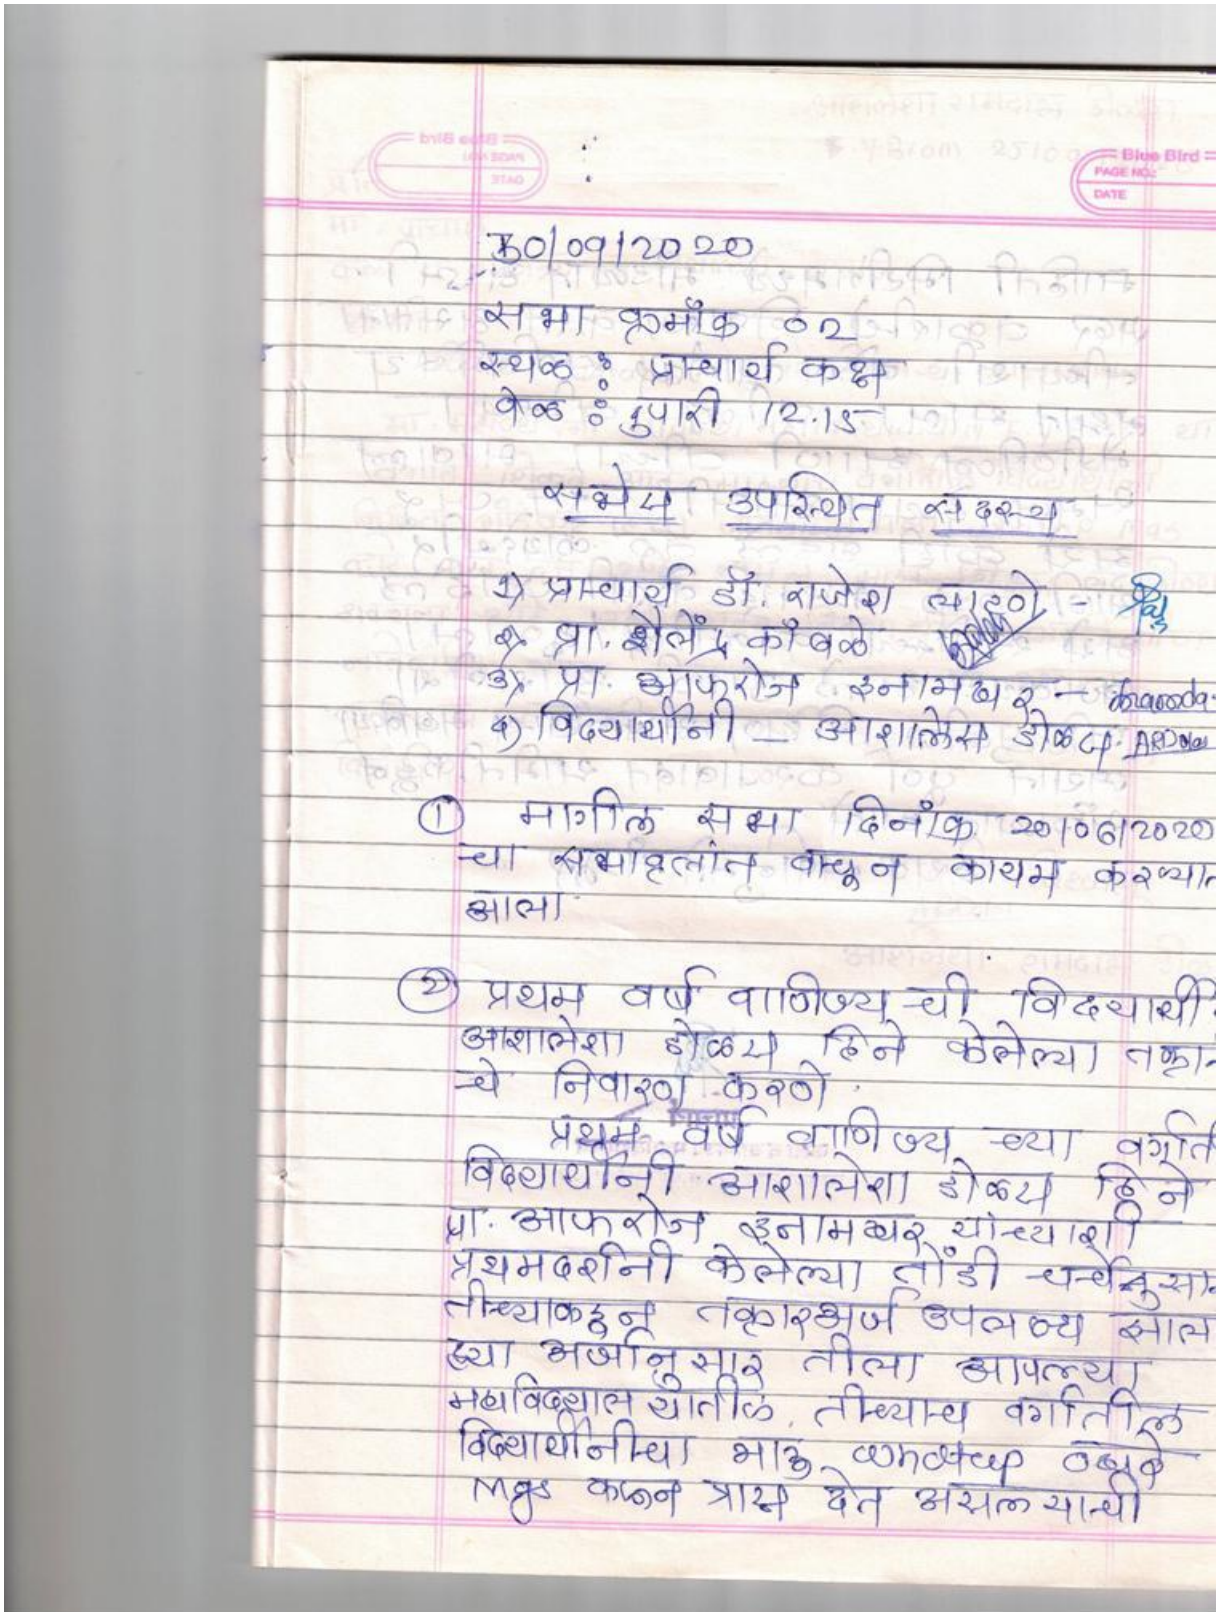 Blue Bird
PAGE NO.:
DATE
30/09/2020
सभा क्रमाँक 02
स्थळ : प्राचार्य कक्ष
वेळ : दुपारी 12.15
सभेस उपस्थित सदस्य
1) प्राचार्य डॉ. राजेश
2) प्रा. शैलेंद्र कांबळे
3) प्रा. आफरोज इनामदार -
4) विदयार्थीनी - आशालेस डोळस.
① मागील सभा दिनाँक 20/06/2020
चा सभावृत्तांत वाचून कायम करण्यात
आला.
② प्रथम वर्ष वाणिज्य ची विदयार्थी
आशालेशा डोळस हिने केलेल्या
चे निवारण करणे.
प्रथम वर्ष वाणिज्य च्या
विदयार्थीनी आशालेशा डोळस हिने
प्रा. आफरोज इनामदार यांच्याशी
प्रथमदर्शनी केलेल्या तोंडी
तीच्याकडून तक्रारअर्ज उपलब्ध
ह्या अर्जानुसार तीला आपल्या
महाविद्यालयातील. तीच्याच वर्गातील
विदयार्थीनीचा भाऊ
Msgs करून त्रास देत असल्याची